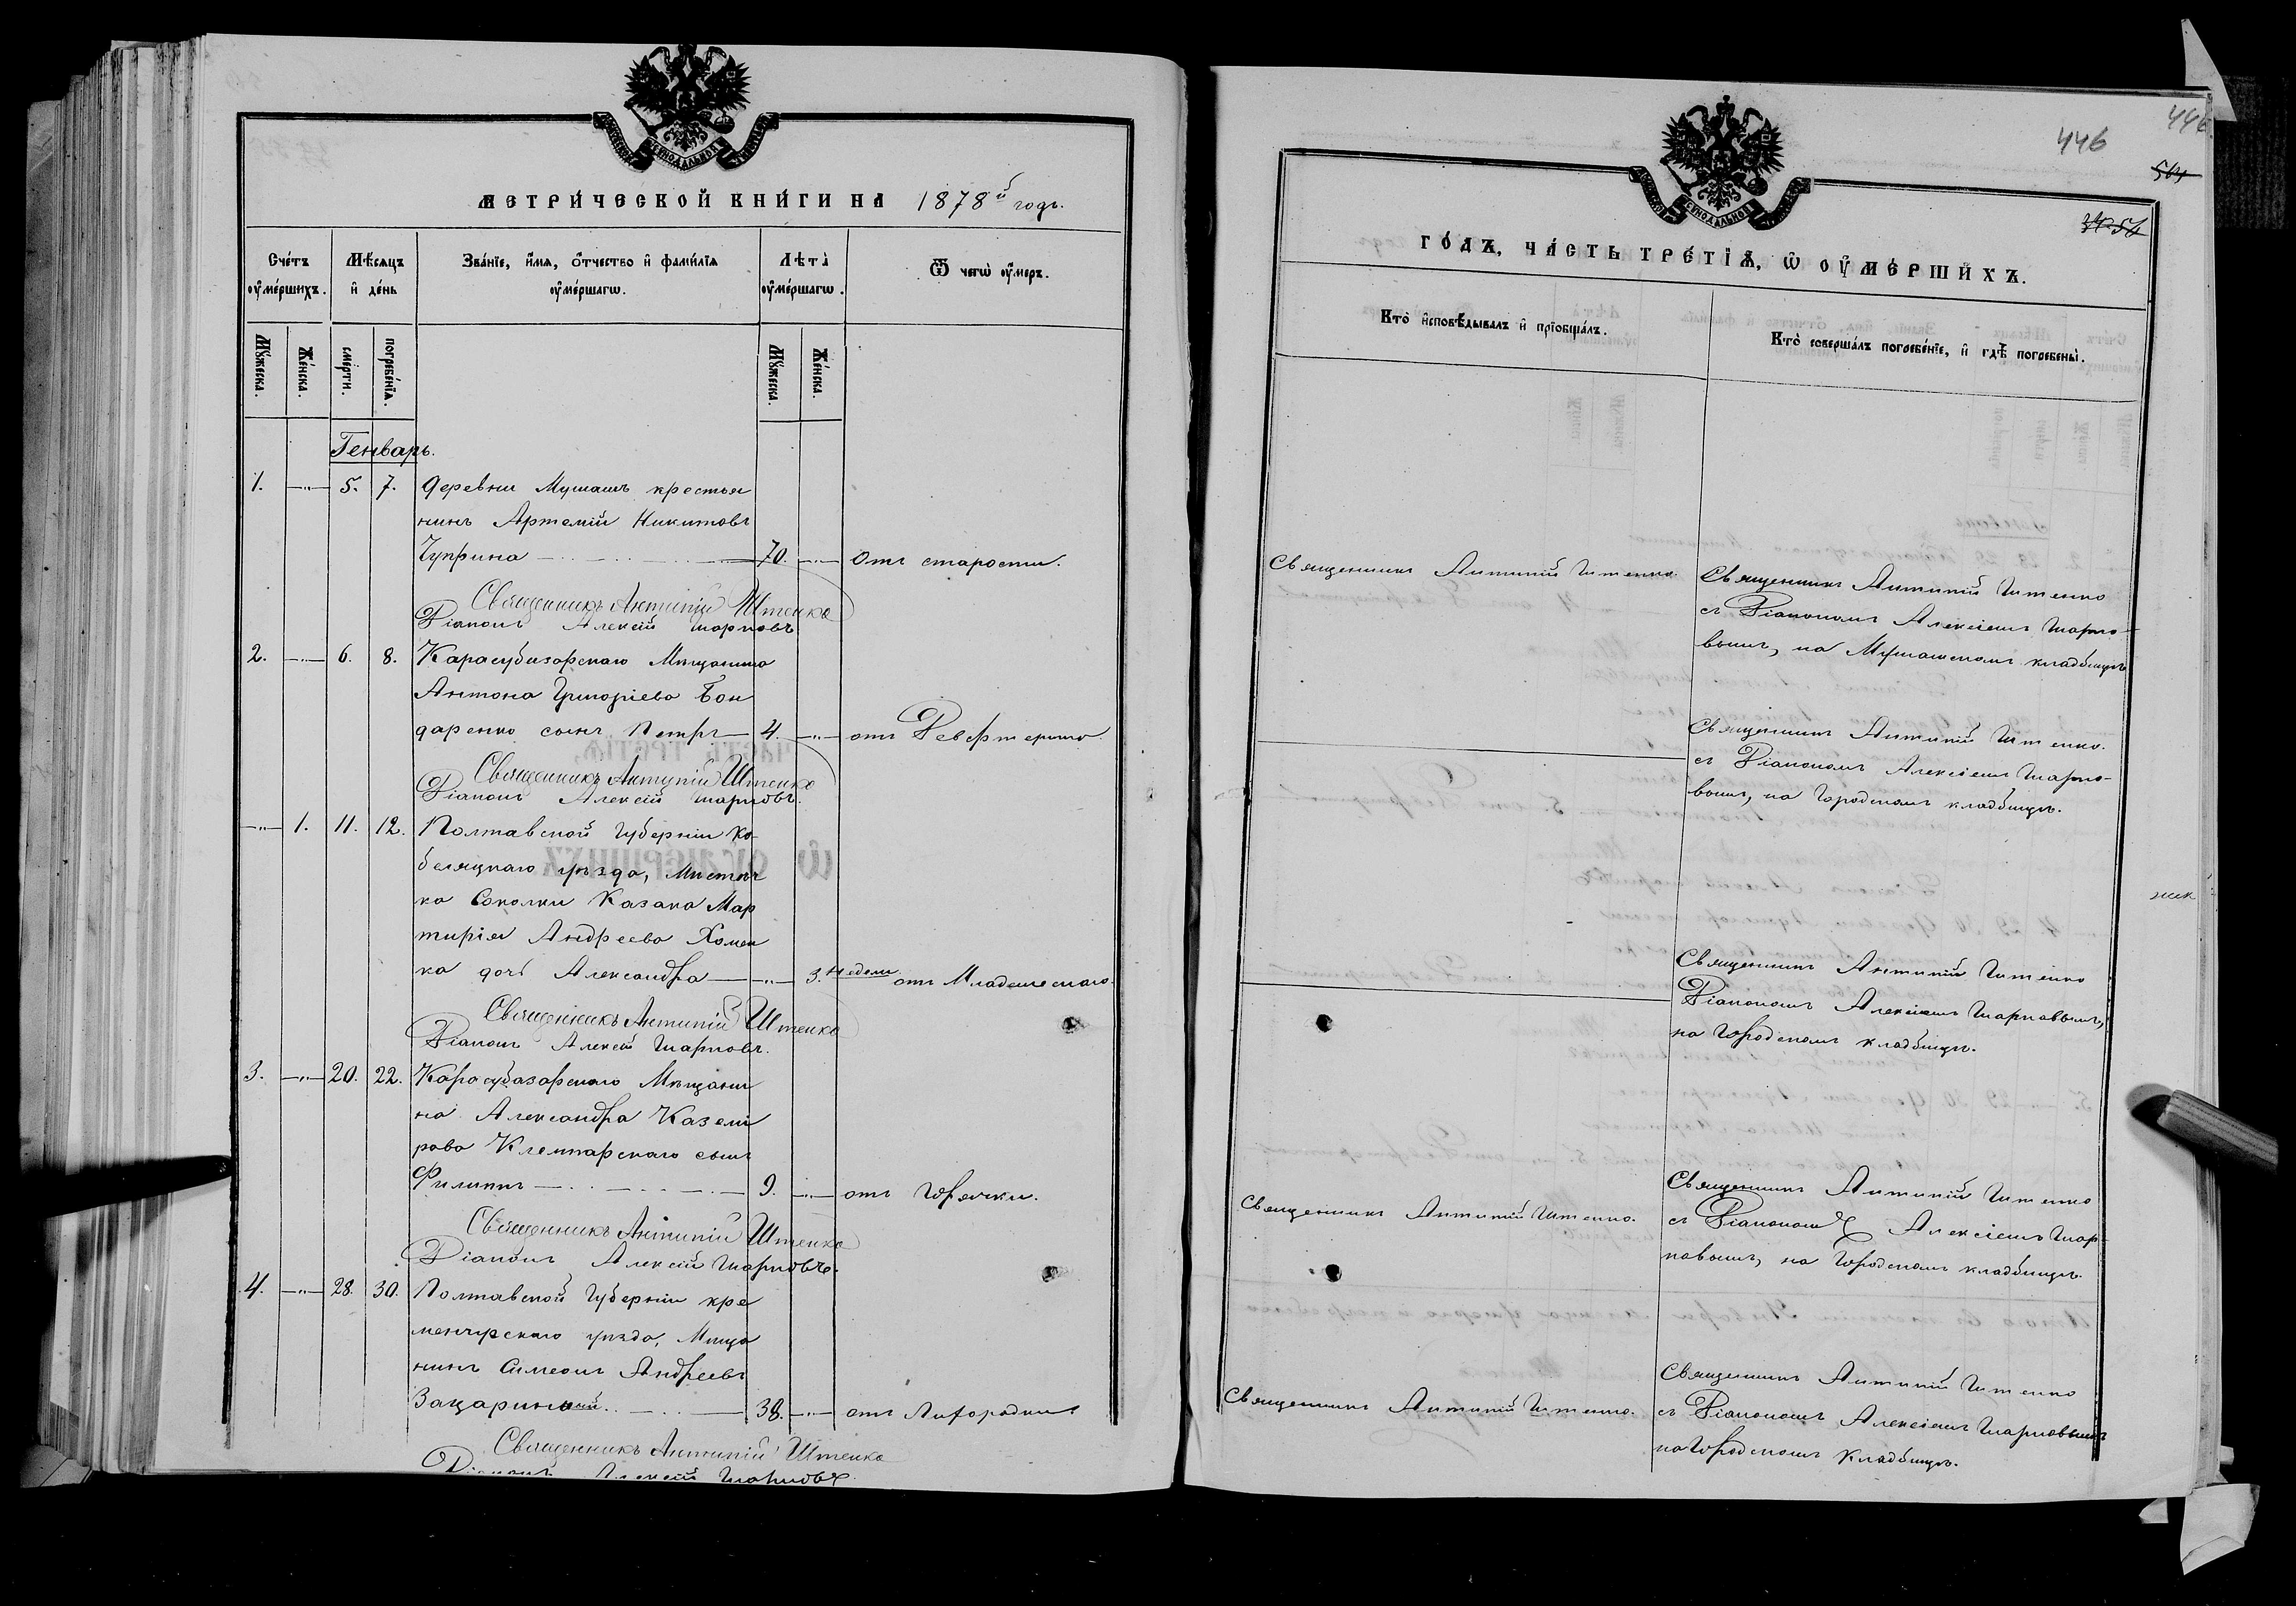 СѴНОДАЛЬНОЙ
МЕТРИ́ЧЕСКОЙ КНИ́ГИ НА 1878й годъ.
Сче́тъ ѹ҆ме́ршихъ.
Мѣ́сяцъ и҆ де́нь
Зва́нїе, и҆́мѧ, ѻ҆́тчество и҆ фами́лїѧ ѹ҆ме́ршагѡ.
Лѣ́та ѹ҆ме́ршагѡ.
Ѿ чегѡ̀ ѹ҆́меръ.
Мꙋ́жеска.
Же́нска.
сме́рти.
погребе́нїѧ.
Мꙋ́жеска.
Же́нска.
Генварь.
1. —"— 5. 7. Деревни Мушашъ крестья
нинъ Артемій Никитовъ
Чуприна — 70. —"— Отъ старости.
Священникъ Антипій Штенко
Діаконъ Алексій Шарповъ
2. —"— 6. 8. Карасубазарскаго Мѣщанина
Антона Григоріева Бон
даренко сынъ Петръ — 4. —"— отъ Дефтерита.
Священникъ Антипій Штенко
Діаконъ Алексій Шарповъ.
—"— 1. 11. 12. Полтавской Губерніи Ко-
беляцкаго уѣзда, Мѣстеч
ка Соколки Казака Мар
тирія Андреева Хомен
ка дочь Александра —"— 3. недели отъ Младенческаго.
Священникъ Антипій Штенко
Діаконъ Алексій Шарповъ.
3. —"— 20. 22. Карасубазарскаго Мѣщани
на Александра Казелі
рова Клемпарскаго сынъ
Филиппъ — 9. —"— отъ Горячки.
Священникъ Антипій Штенко
Діаконъ Алексій Шарповъ.
4. —"— 28. 30. Полтавской Губерніи кре
менчугскаго уѣзда, Мѣща
нинъ Симеонъ Андреевъ
Зацаринскій. — 38. —"— отъ Лихорадки
Священникъ Антипій Штенко
Діаконъ Алексій Шарповъ
446
446
СѴНОДАЛЬНОЙ
ГО́ДЪ, ЧА́СТЬ ТРЕ́ТЇѦ, Ѡ҆ ОУ҆МЕ́РШИХЪ.
Кто̀ и҆сповѣ́дывалъ и҆ прїобща́лъ.
Кто̀ соверша́лъ погребе́нїе, и҆ гдѣ̀ погребены̀.
Священникъ Антипій Штенко.
Священникъ Антипій Штенко
съ Діакономъ Алексіемъ Шарпо-
вымъ, на Мушашскомъ кладбищѣ
Священникъ Антипій Штенко.
съ Діакономъ Алексіемъ Шарпо-
вымъ, на Городскомъ кладбищѣ.
Священникъ Антипій Штенко
Діакономъ Алексіемъ Шарповымъ,
на Городскомъ кладбищѣ.
Священникъ Антипій Штенко.
Священникъ Антипій Штенко
съ Діакономъ Алексіемъ Шар-
повымъ, на Городскомъ кладбищѣ.
Священникъ Антипій Штенко.
Священникъ Антипій Штенко
съ Діакономъ Алексіемъ Шарповымъ
на Городскомъ Кладбищѣ.